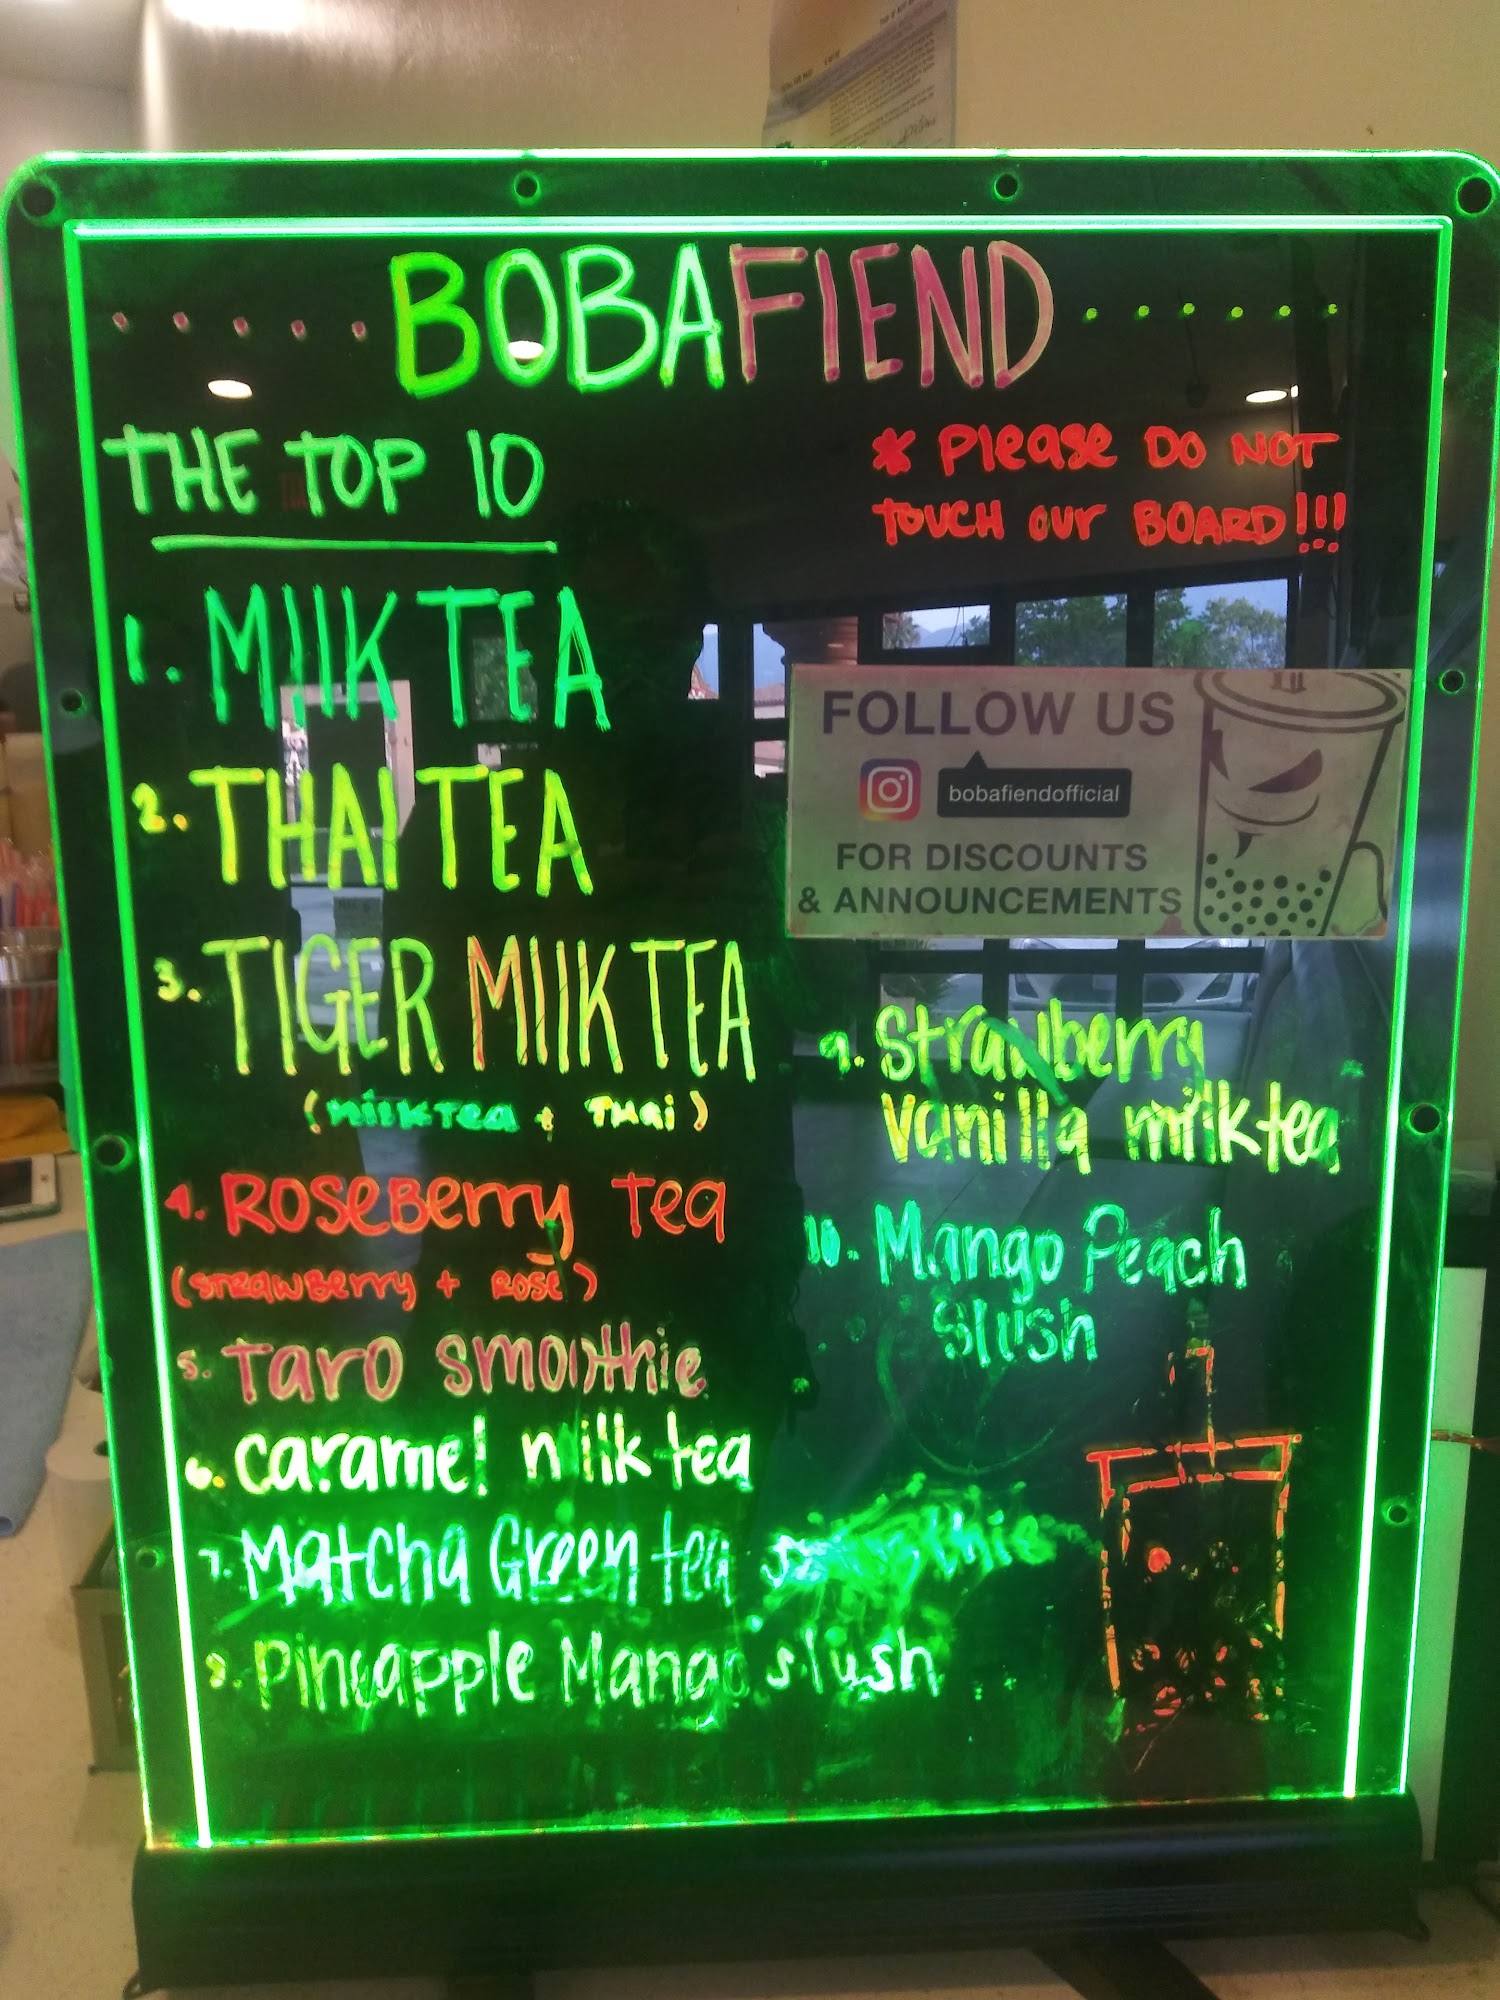 BOBAFIEND
THE TOP 10
* Please DO NOT
TOUCH our BOARD!!!
1. MIlK TEA
2. THAI TEA
3. TIGER MIlK TEA
(milk Tea + THai)
4. ROSEBerry Tea
(STrawBerry + Rose)
5. Taro smoothie
6. caramel milk tea
7. Matcha Green tea smoothie
8. Pineapple Mango slush
FOLLOW US
bobafiendofficial
FOR DISCOUNTS
& ANNOUNCEMENTS
9. Strawberry
vanilla milk tea
10. Mango Peach
Slush